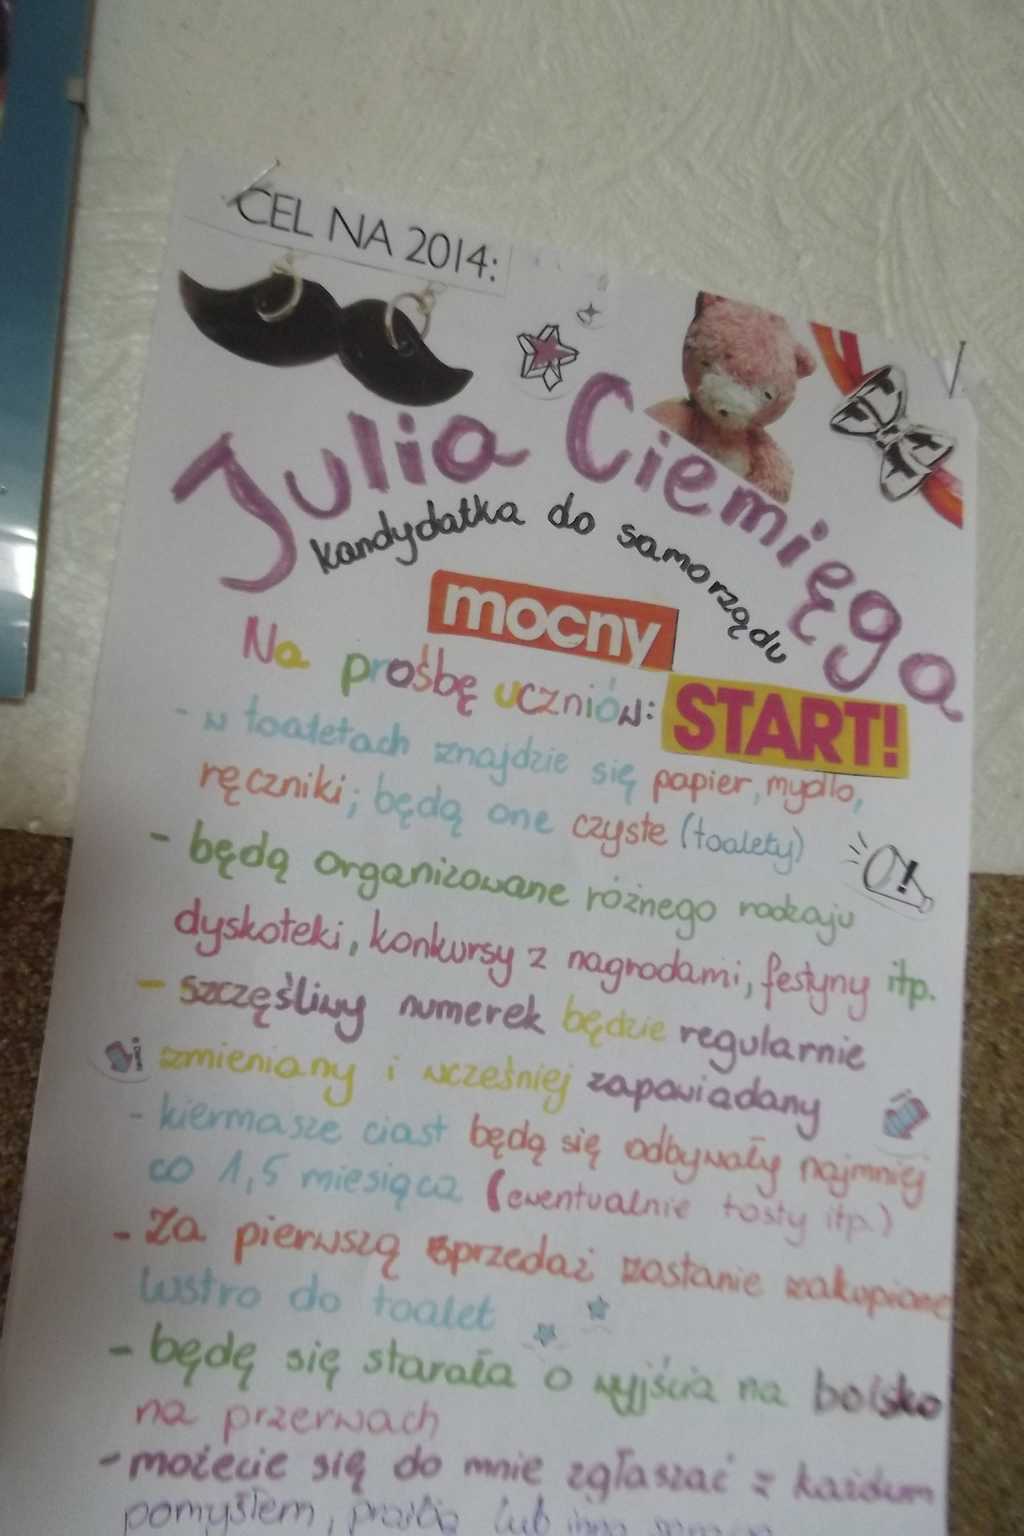 CEL NA 2014:
Julia Ciemięga
kandydatka do samorządu
mocny
START!
Na prośbę uczniów:
- w toaletach znajdzie się papier, mydło,
ręczniki; będą one czyste (toalety)
- będą organizowane różnego rodzaju
dyskoteki, konkursy z nagrodami, festyny itp.
- szczęśliwy numerek będzie regularnie
zmieniany i wcześniej zapowiadany
- kiermasze ciast będą się odbywały najmniej
co 1,5 miesiąca (ewentualnie tosty itp.)
- Za pierwszą sprzedaż zostanie zakupione
lustro do toalet
- będę się starała o wyjścia na boisko
na przerwach
- możecie się do mnie zgłaszać z każdym
pomysłem, prośbą lub inną